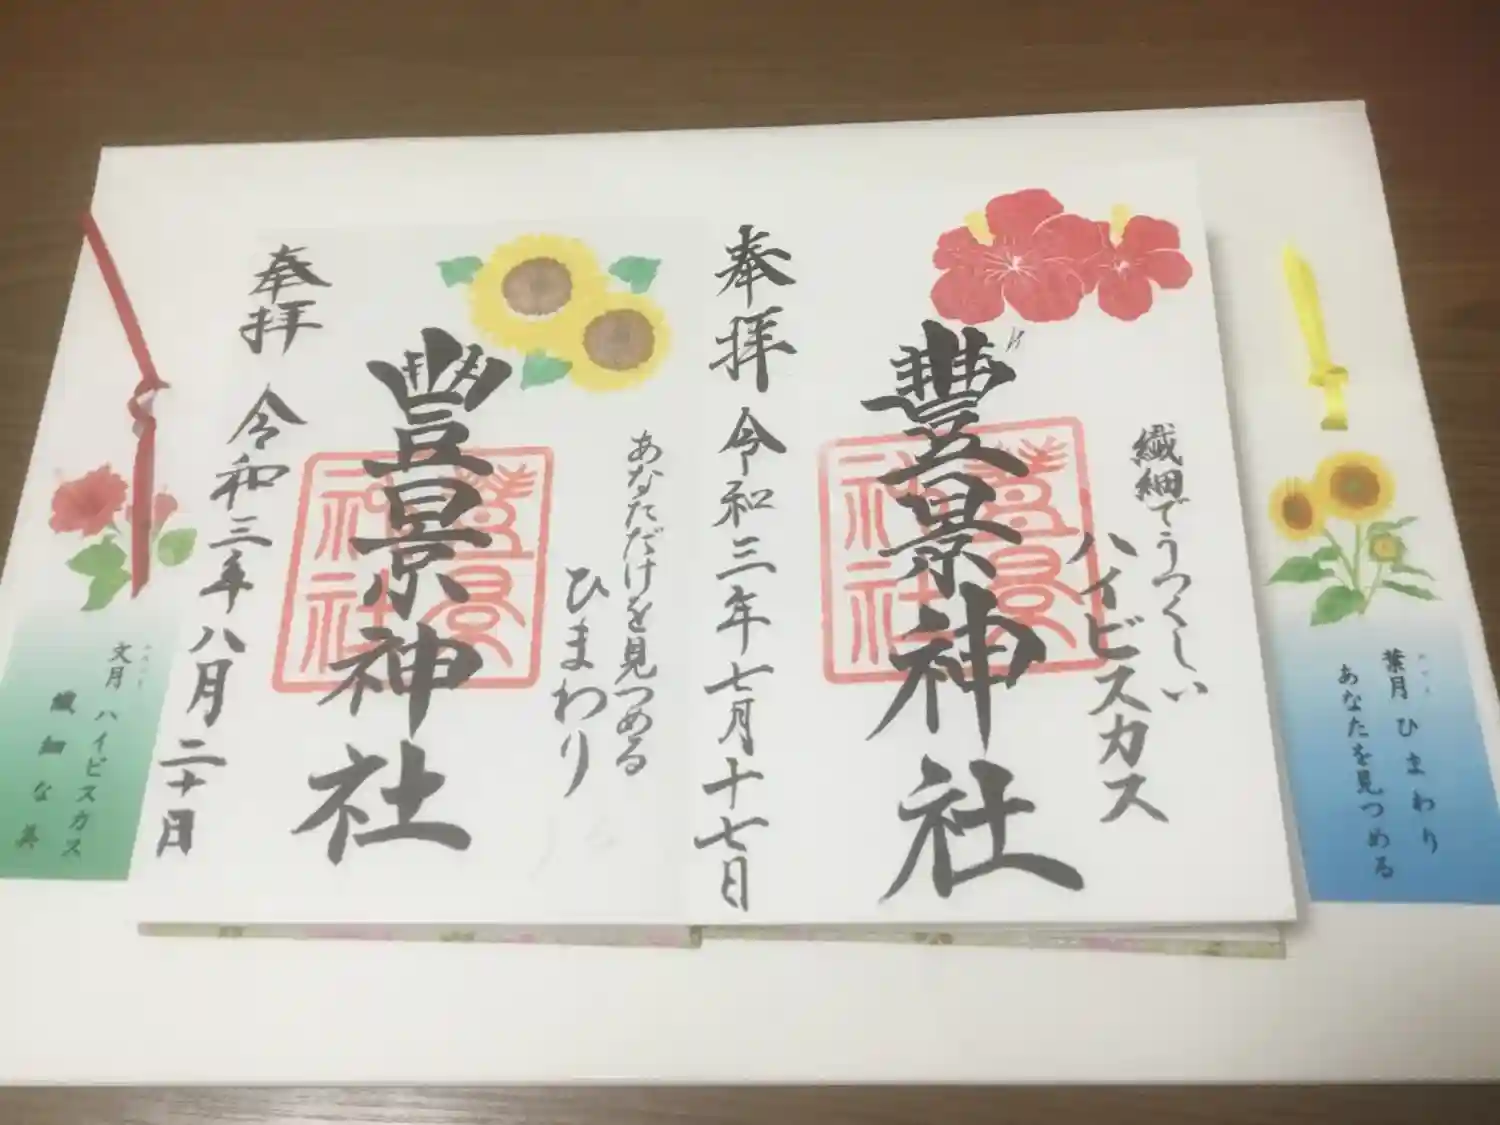 葉月 ひまわり
あなたを見つめる
繊細でうつくしい
ハイビスカス
豐景神社
豐景神社
奉拝 令和三年七月十七日
あなただけを見つめる
ひまわり
豐景神社
豐景神社
奉拝
令和三年八月二十日
文月 ハイビスカス
繊細な美